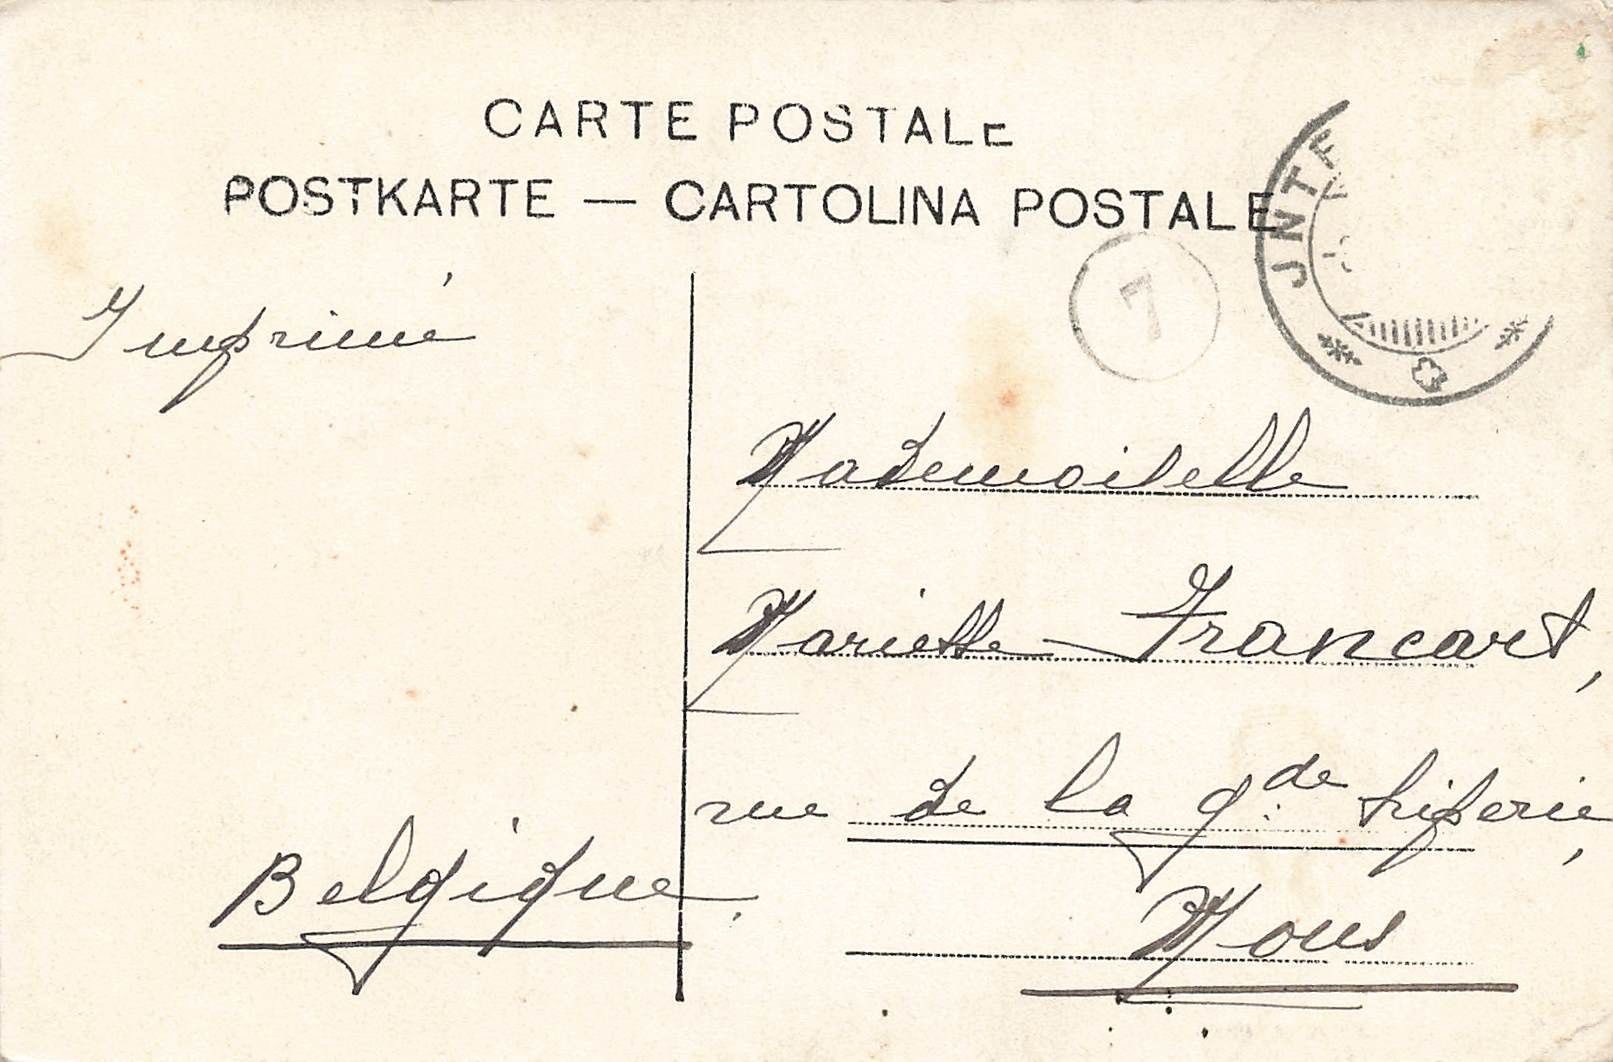 CARTE POSTALE
POSTKARTE — CARTOLINA POSTALE
JNTE
7
Imprimé
Mademoiselle
Mariette Francart,
rue de la gde triperie,
Mons
Belgique.